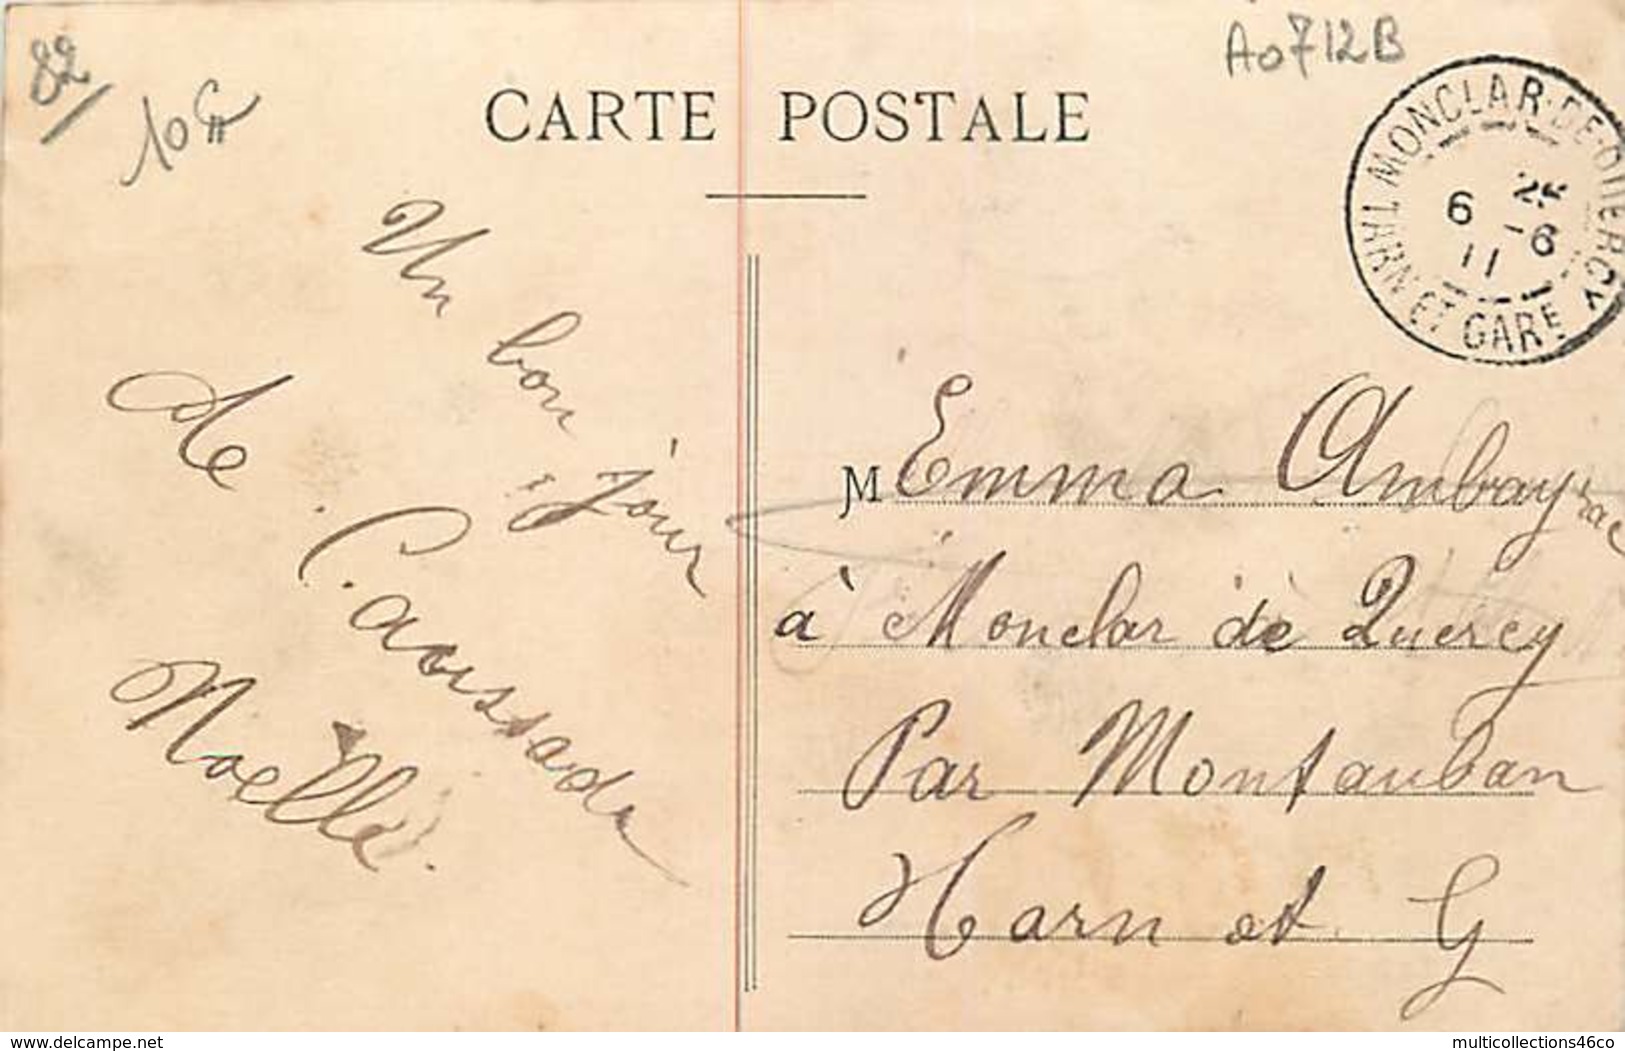 82
10
Ao712B
CARTE POSTALE
MONCLAR-DE-QUERCY
6 25
-6
11
TARN ET GARE
Un bon jour
de Caussade
Noëlle.
M Emma Ambayrac
à Monclar de Quercy
Par Montauban
Tarn et G
delcampe.net
multicollections46co